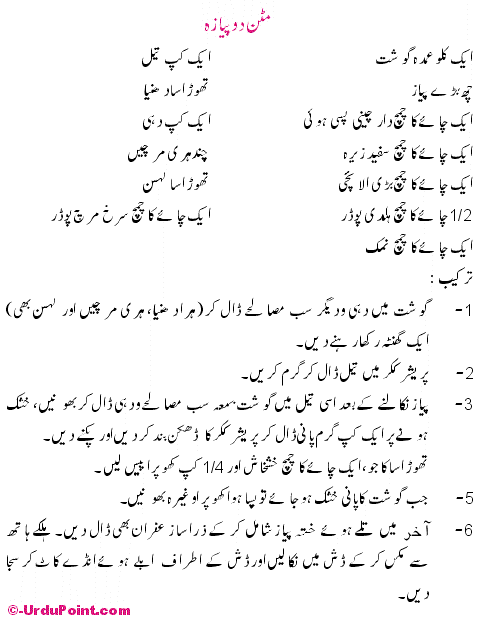 مٹن دو پیازہ
ایک کلو عمدہ گوشت
ایک کپ تیل
چھ بڑے پیاز
تھوڑا سا دھنیا
ایک چائے کا چمچ دار چینی پسی ہوئی
ایک کپ دہی
ایک چائے کا چمچ سفید زیرہ
چند ہری مرچیں
ایک چائے کا چمچ بڑی الائچی
تھوڑا سا لہسن
1/2 چائے کا چمچ ہلدی پوڈر
ایک چائے کا چمچ سرخ مرچ پوڈر
ایک چائے کا چمچ نمک
ترکیب :
1- گوشت میں دہی و دیگر سب مصالحے ڈال کر (ہرا دھنیا، ہری مرچیں اور لہسن بھی)
ایک گھنٹہ رکھا رہنے دیں۔
2- پریشر ککر میں تیل ڈال کر گرم کریں۔
3- پیاز نکالنے کے بعد اسی تیل میں گوشت بمعہ سب مصالحے و دہی ڈال کر بھونیں، خشک
ہونے پر ایک کپ گرم پانی ڈال کر پریشر ککر کا ڈھکن بند کر دیں اور پکنے دیں۔
تھوڑا سا کاجو، ایک چائے کا چمچ خشخاش اور 1/4 کپ کھوپرا پیس لیں۔
5- جب گوشت کا پانی خشک ہو جائے تو پسا ہوا کھوپرا وغیرہ بھونیں۔
6- آخر میں تلے ہوئے خستہ پیاز شامل کر کے ذرا سا زعفران بھی ڈال دیں۔ ہلکے ہاتھ
سے مکس کر کے ڈش میں نکالیں اور ڈش کے اطراف ابلے ہوئے انڈے کاٹ کر سجا
دیں۔
©-UrduPoint.com